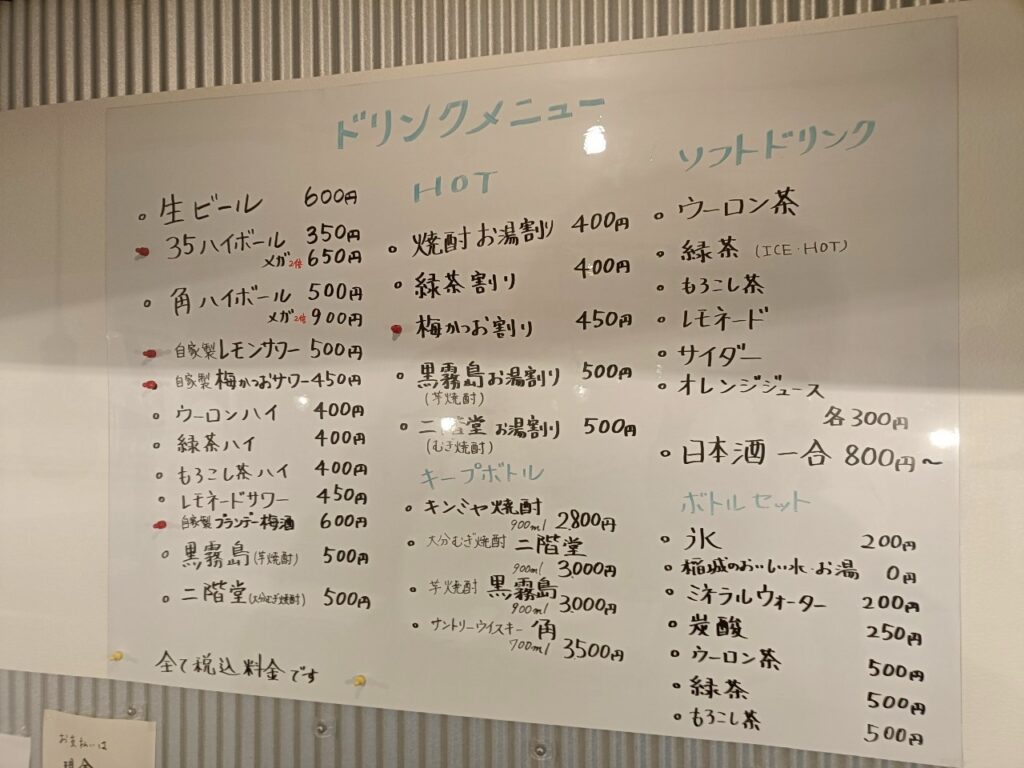 ドリンクメニュー
生ビール 600円
35ハイボール 350円
メガ2倍 650円
角ハイボール 500円
メガ2倍 900円
自家製レモンサワー 500円
自家製梅かつおサワー 450円
ウーロンハイ 400円
緑茶ハイ 400円
もろこし茶ハイ 400円
レモネードサワー 450円
自家製ブランデー梅酒 600円
黒霧島(芋焼酎) 500円
二階堂(大分むぎ焼酎) 500円
全て税込料金です
HOT
焼酎お湯割り 400円
緑茶割り 400円
梅かつお割り 450円
黒霧島お湯割り 500円
(芋焼酎)
二階堂お湯割り 500円
(むぎ焼酎)
キープボトル
キンミヤ焼酎
900ml 2,800円
大分むぎ焼酎 二階堂
900ml 3,000円
芋焼酎 黒霧島
900ml 3,000円
サントリーウイスキー 角
700ml 3,500円
ソフトドリンク
ウーロン茶
緑茶 (ICE・HOT)
もろこし茶
レモネード
サイダー
オレンジジュース
各300円
日本酒 一合 800円〜
ボトルセット
氷 200円
稲城のおいしい水・お湯 0円
ミネラルウォーター 200円
炭酸 250円
ウーロン茶 500円
緑茶 500円
もろこし茶 500円
お支払いは
現金